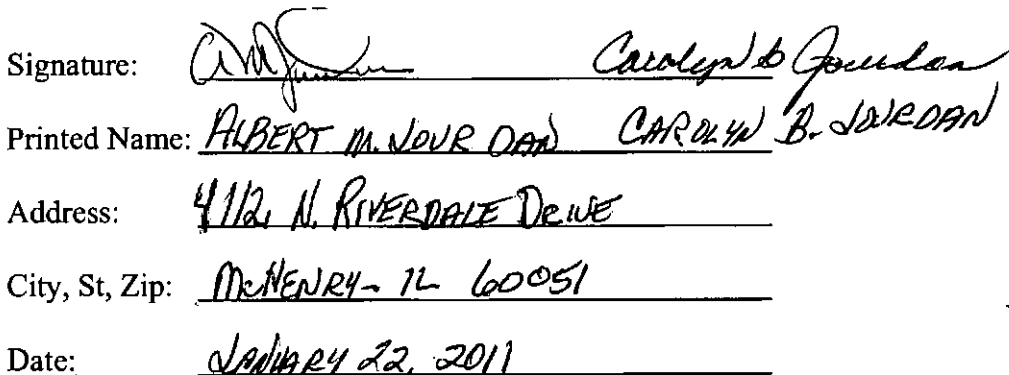 Signature: Carolyn B Jourdan
Printed Name: ALBERT M. JOURDAN CAROLYN B. JOURDAN
Address: 4112 N. RIVERDALE DRIVE
City, St, Zip: McHENRY - IL 60051
Date: JANUARY 22, 2011